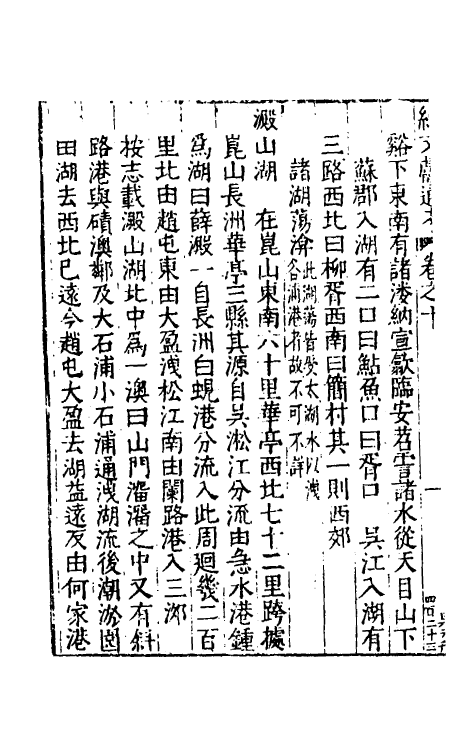 谿下東南有諸漊納宣歙臨安苕霅諸水從天目山下
蘇郡入湖有二口曰鮎魚口曰胥口　吳江入湖有
三路西北曰柳胥西南曰簡村其一則西郊
諸湖蕩淪此湖蕩皆受太湖水以洩
各浦港者故不可不詳
澱山湖　在崑山東南六十里華亭西北七十二里跨據
崑山長洲華亭三縣其源自吳淞江分流由急水港鍾
爲湖曰薛澱一自長洲白蜆港分流入此周迴幾二百
里北由趙屯東由大盈洩松江南由闌路港入三泖
按志載澱山湖北中爲一澳曰山門溜潘之中又有斜
路港與磧澳鄰及大石浦小石浦通洩湖流後潮淤圍
田湖去西北已遠今趙屯大盈去湖益遠反由何家港